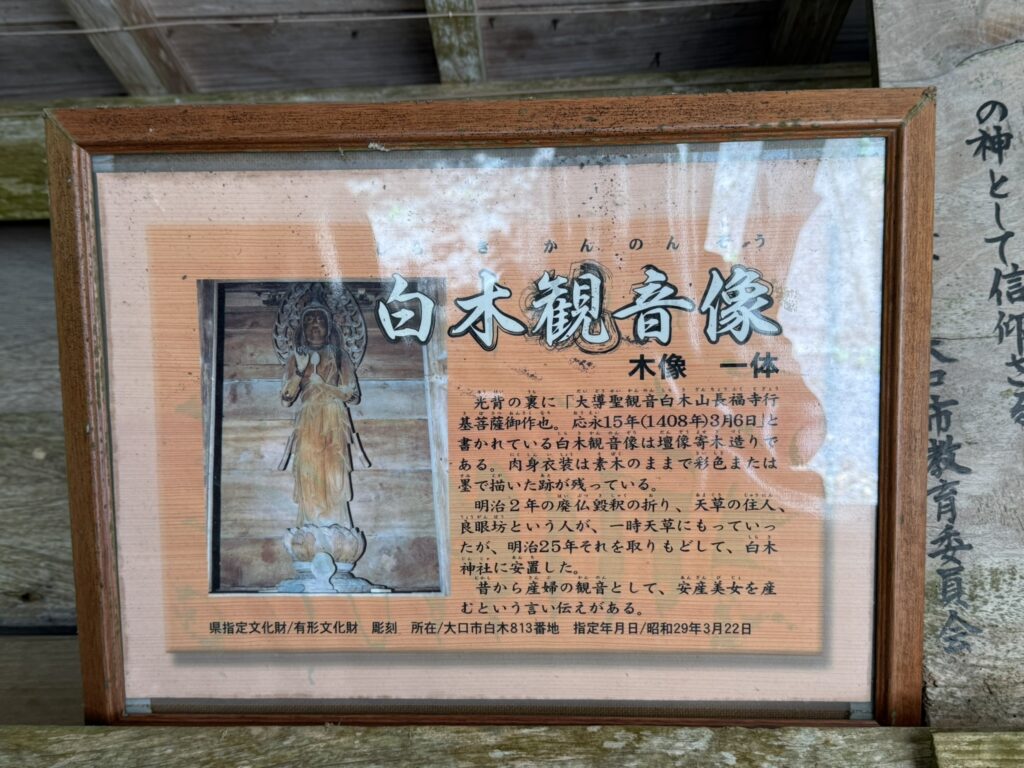 かんのんぞう
白木観音像
木像　一体
光背の裏に「大導聖観音白木山長福寺行
基菩薩御作也。応永15年(1408年)3月6日」と
書かれている白木観音像は壇像寄木造りで
ある。肉身衣装は素木のままで彩色または
墨で描いた跡が残っている。
明治２年の廃仏毀釈の折り、天草の住人、
良眼坊という人が、一時天草にもっていっ
たが、明治25年それを取りもどして、白木
神社に安置した。
昔から産婦の観音として、安産美女を産
むという言い伝えがある。
県指定文化財/有形文化財　彫刻　所在/大口市白木813番地　指定年月日/昭和29年3月22日
の神として信仰せる
大口市教育委員会